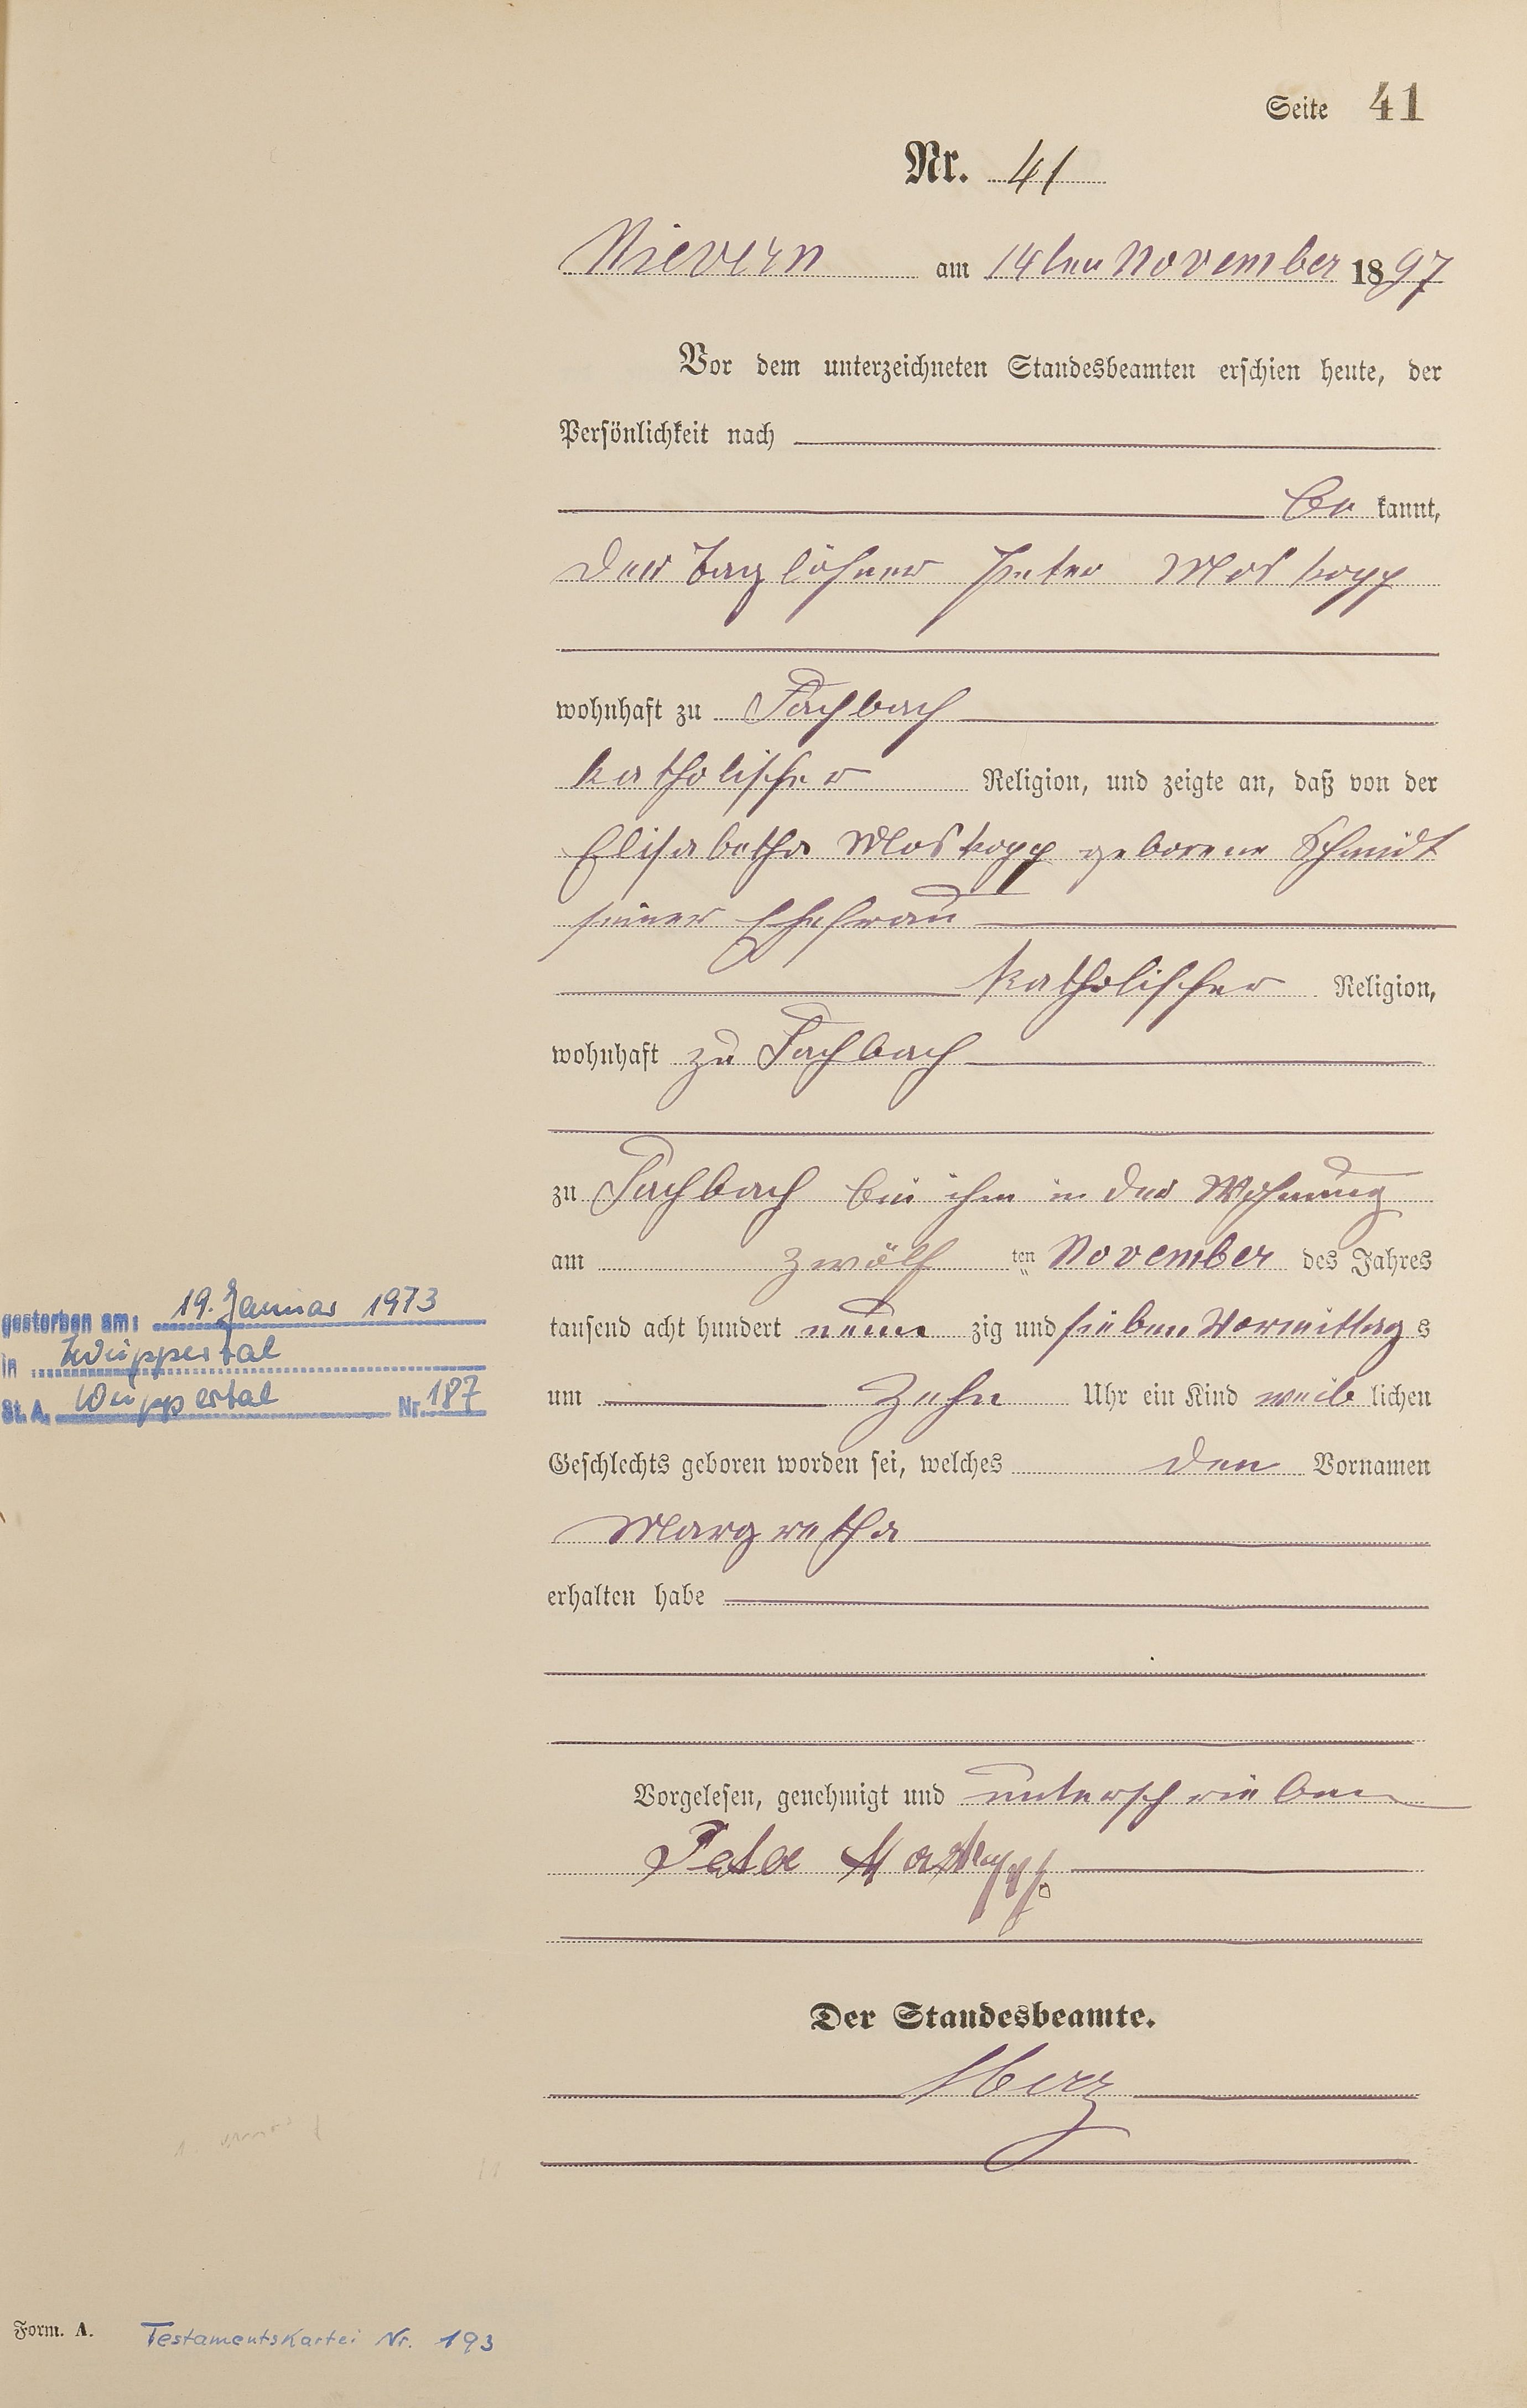 Seite 41
Nr. 41
Nievern am 14ten November 1897
Vor dem unterzeichneten Standesbeamten erschien heute, der
Persönlichkeit nach
be kannt,
der Taglöhner Peter Moskopp
wohnhaft zu Fachbach
katholischer Religion, und zeigte an, daß von der
Elisabetha Moskopp geborene Schmidt
seiner Ehefrau
katholischer Religion,
wohnhaft zu Fachbach
zu Fachbach bei ihm in der Wohnung
am zwölf ten November des Jahres
tausend acht hundert neun zig und sieben Vormittag s
um zehn Uhr ein Kind weib lichen
Geschlechts geboren worden sei, welches den Vornamen
Margretha
erhalten habe
Vorgelesen, genehmigt und unterschrieben
Peter Moskopp
Der Standesbeamte.
gestorben am: 19. Januar 1973
in Wuppertal
St. A. Wuppertal Nr. 187
Form. A. Testamentskartei Nr. 193